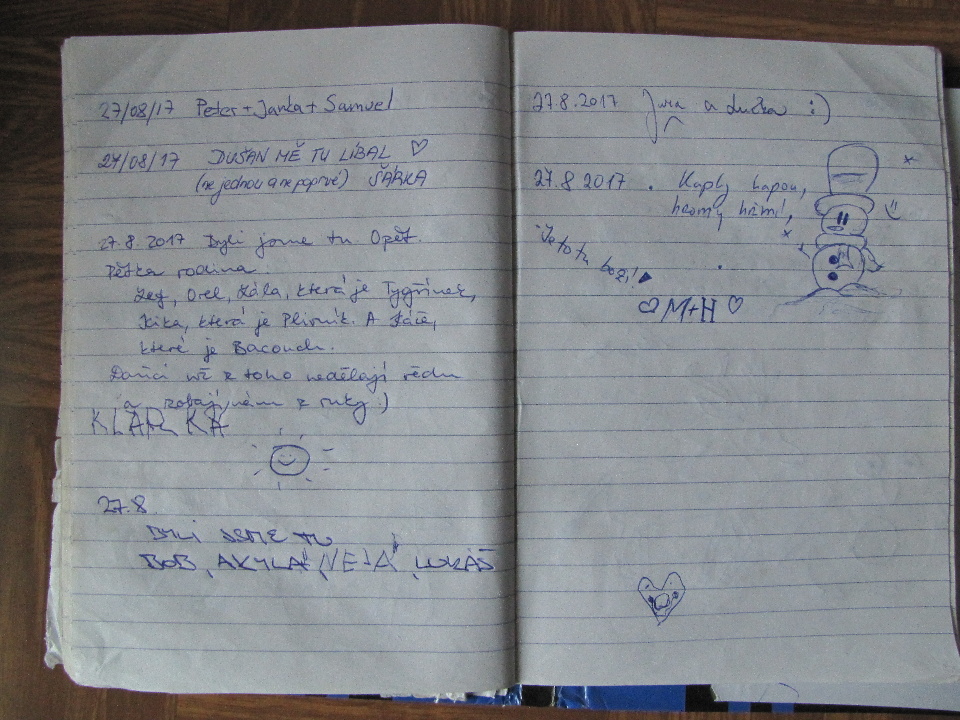 27/08/17 Peter + Janka + Samuel
27/08/17 DUŠAN MĚ TU LÍBAL ♡
(ne jednou a ne poprvé) ŠÁRKA
27.8.2017 Byli jsme tu Opět.
Pětka rodina.
Orel, která je Tygřínek,
Kika, která je Plivník. A
které je Bacouch.
Daňci už z toho nedělají vědu
a zobají nám z ruky :)
KLÁRKA
27.8.
BYLI JSME TU
BOB, AKYLA, NEJA, LUKÁŠ
27.8.2017 Jura a dučka :)
27.8 2017 . Kapky kapou,
hromy hřmí!,
Je to tu boží!
♡ M+H ♡